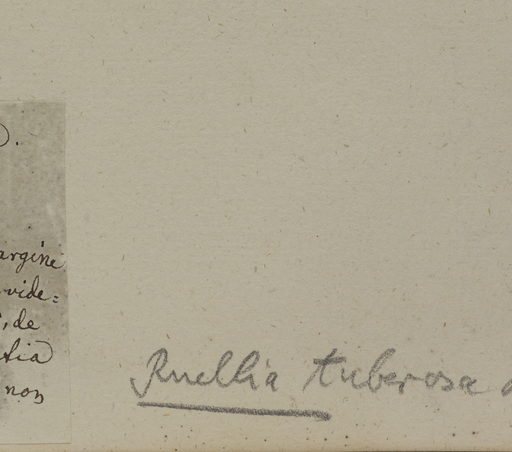 argine
vide=
, de
tia
non
Ruellia tuberosa